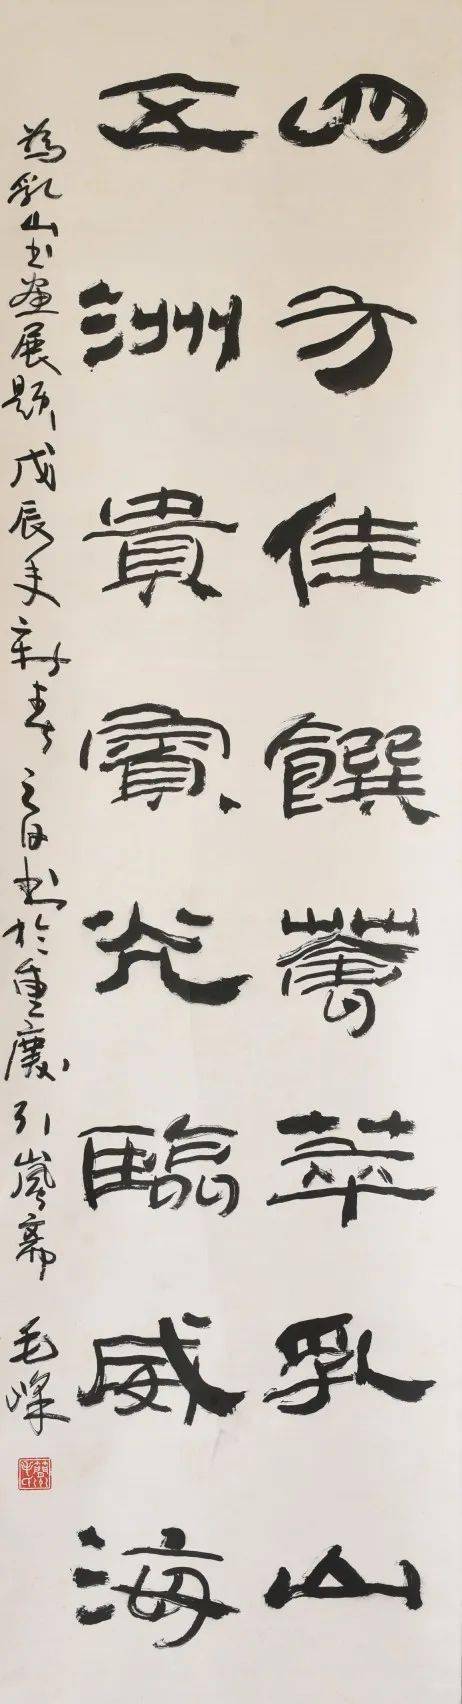 四方佳饌薈萃乳山
五洲貴賓光臨威海
為乳山書畫展題戊辰年新春之日書於重慶引嵐齋 毛峰